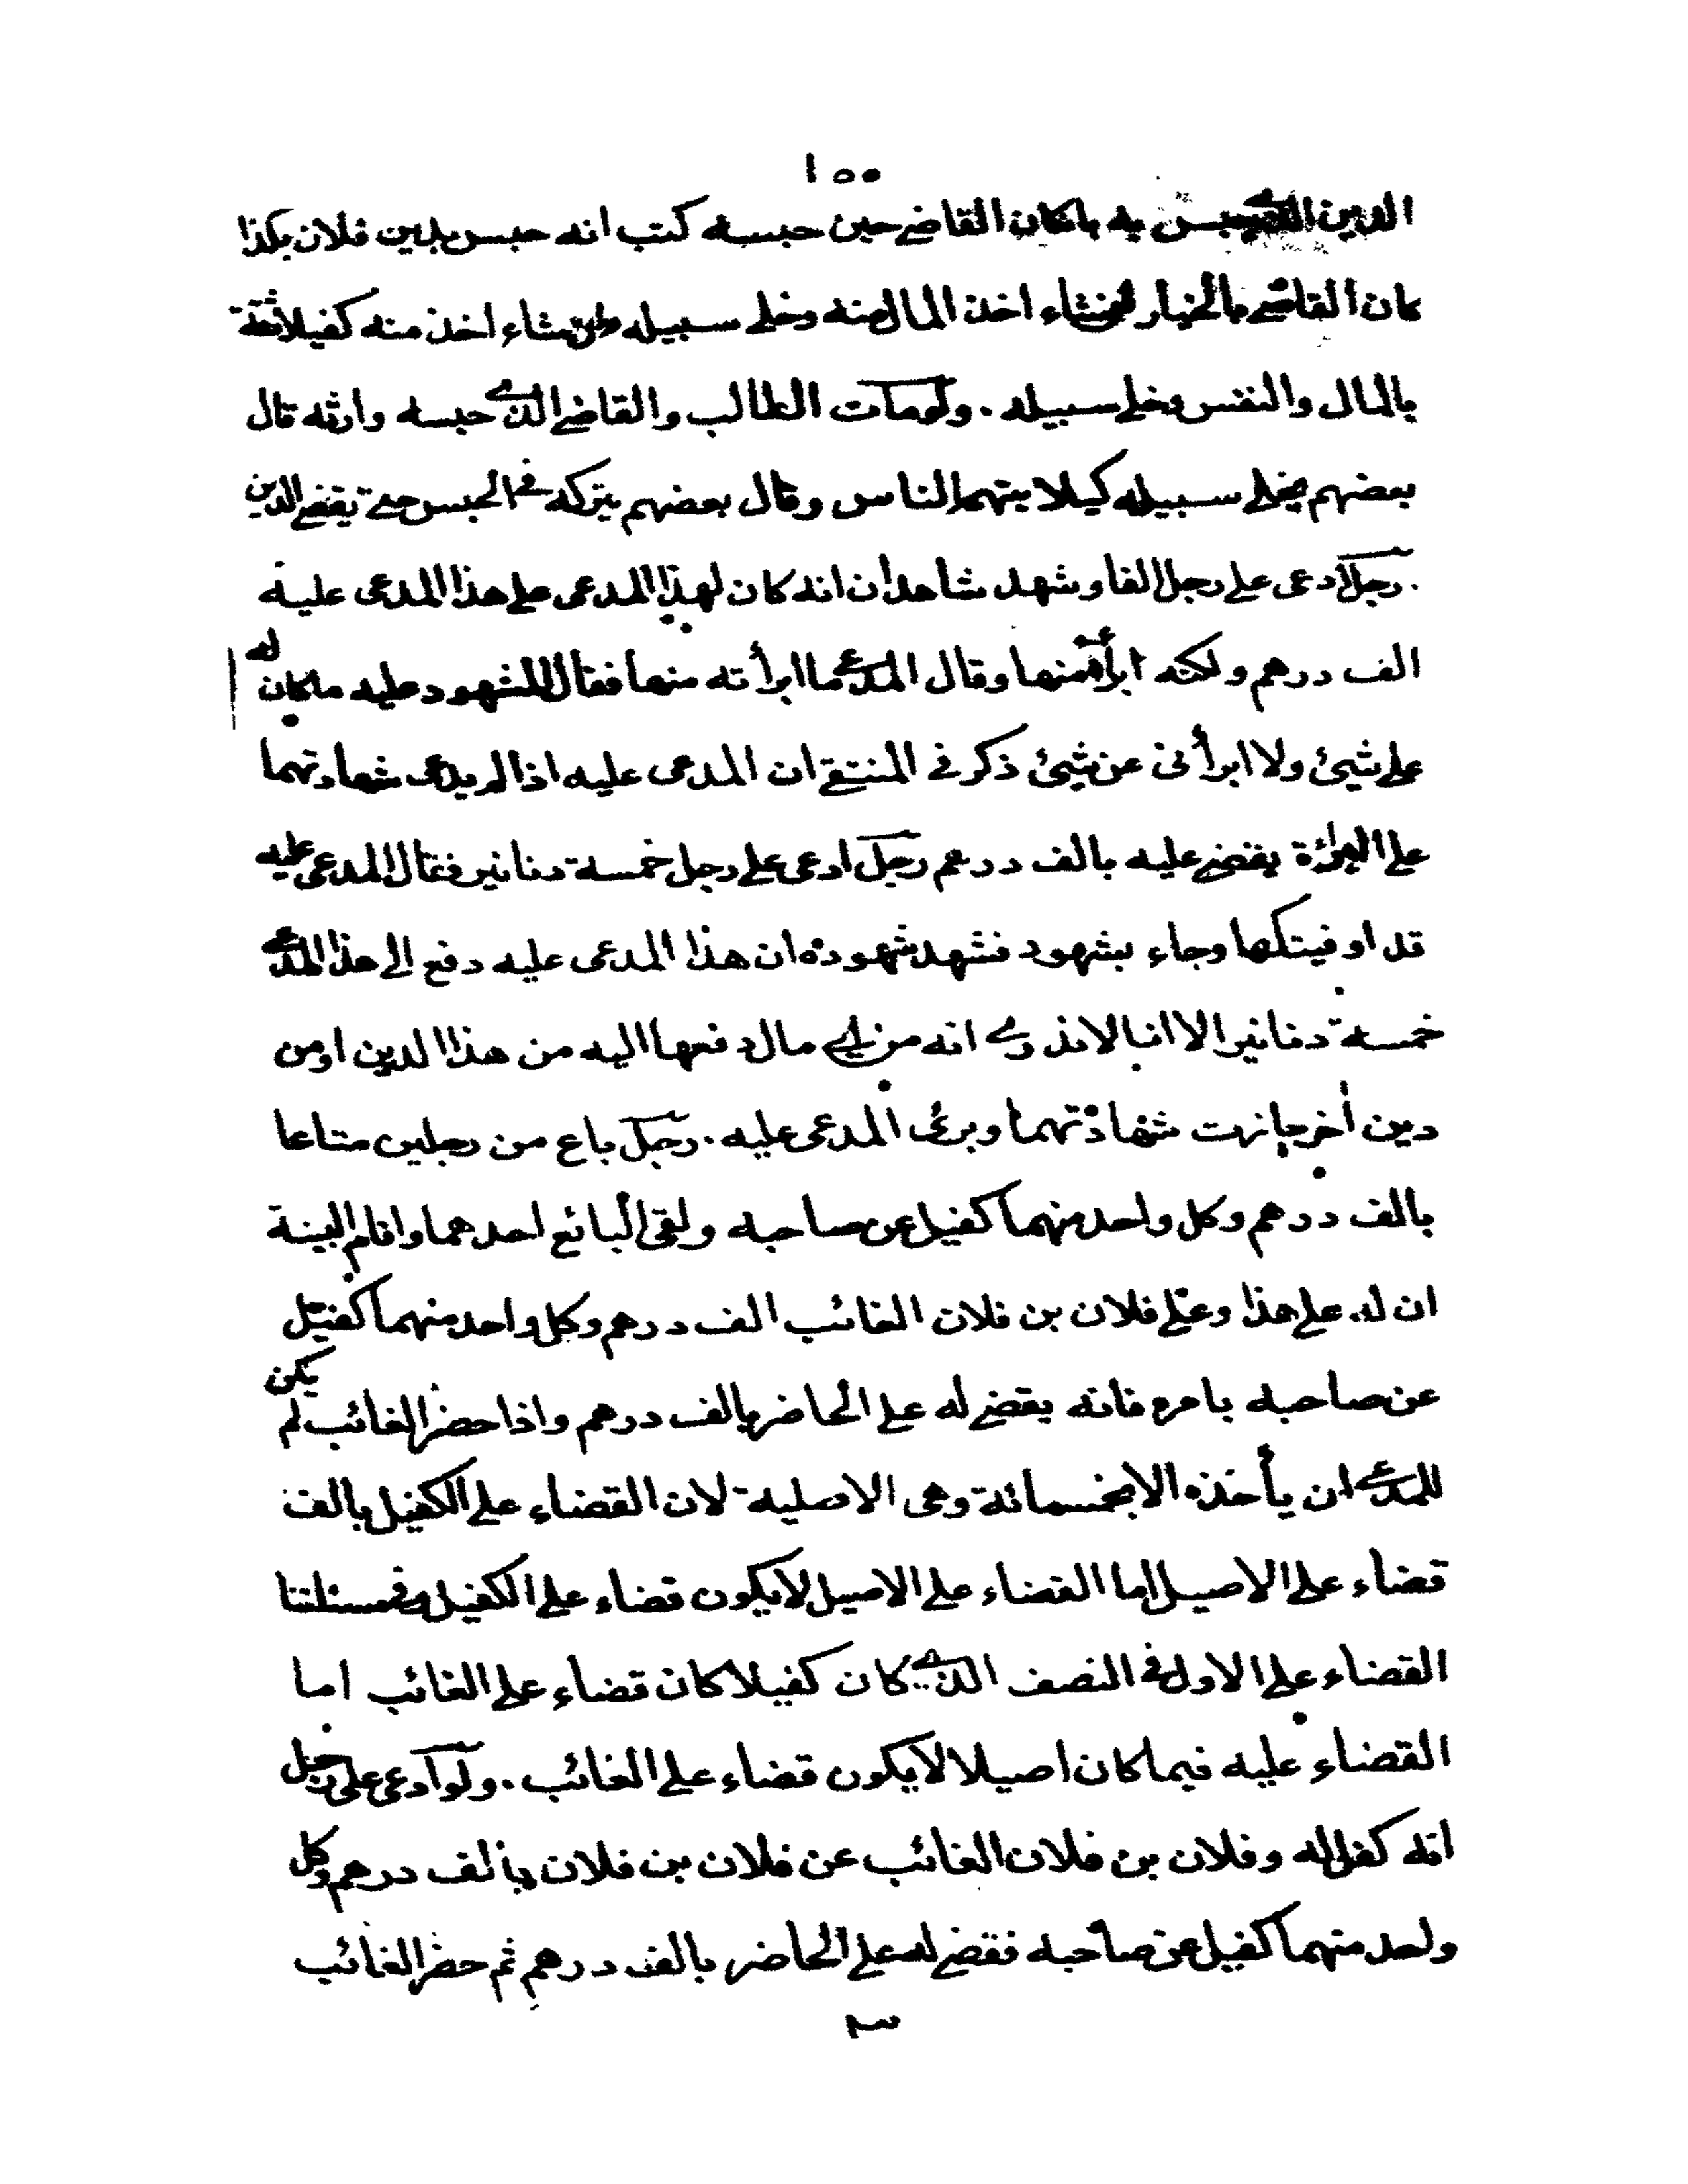 ١٥٥
الدين الذى حبس به بان كان القاضى حين حبسه كتب انه حبس بدين فلان بكذا
كان القاضى بالخيار ان شاء اخذ المال منه وخلى سبيله وان شاء اخذ منه كفيلا ثقة
بالمال والنفس وخلى سبيله . ولو مات الطالب والقاضى الذى حبسه وارثه قال
بعضهم يخلى سبيله كيلا يتهم الناس وقال بعضهم يتركه فى الحبس حتى يقضى الدين
. رجل ادعى على رجل الفا وشهد شاهدان انه كان لهذا المدعى على هذا المدعى عليه
الف درهم ولكنه ابرأه منها وقال المدعى ما ابرأته منها فقال المشهود عليه ما كان له
على شيئ ولا ابرأنى عن شيئ ذكر فى المنتقى ان المدعى عليه اذا لم يدع شهادتهما
على البرائة يقضى عليه بالف درهم رجل ادعى على رجل خمسة دنانير فقال المدعى عليه
قد اوفيتكها وجاء بشهود فشهد شهوده ان هذا المدعى عليه دفع الى هذا المدعى
خمسة دنانير الا انا لا ندرى انه من اى مال دفعها اليه من هذا الدين او من
دين أخر جازت شهادتهما وبرئ المدعى عليه . رجل باع من رجلين متاعا
بالف درهم وكل واحد منهما كفيل عن صاحبه ولقى البائع احدهما واقام البينة
ان له على هذا وعلى فلان بن فلان الغائب الف درهم وكل واحد منهما كفيل
عن صاحبه بامره فانه يقضى له على الحاضر بالف درهم واذا حضر الغائب لم يكن
للمدعى ان يأخذه الا بخمسمائة وهى الاصلية لان القضاء على الكفيل بالف
قضاء على الاصيل اما القضاء على الاصيل لا يكون قضاء على الكفيل وفى مسئلتنا
القضاء على الاول فى النصف الذى كان كفيلا كان قضاء على الغائب اما
القضاء عليه فيما كان اصيلا لا يكون قضاء على الغائب . ولو ادعى على رجل
انه كفل له وفلان بن فلان الغائب عن فلان بن فلان بالف درهم وكل
واحد منهما كفيل عن صاحبه فقضى له على الحاضر بالف درهم ثم حضر الغائب